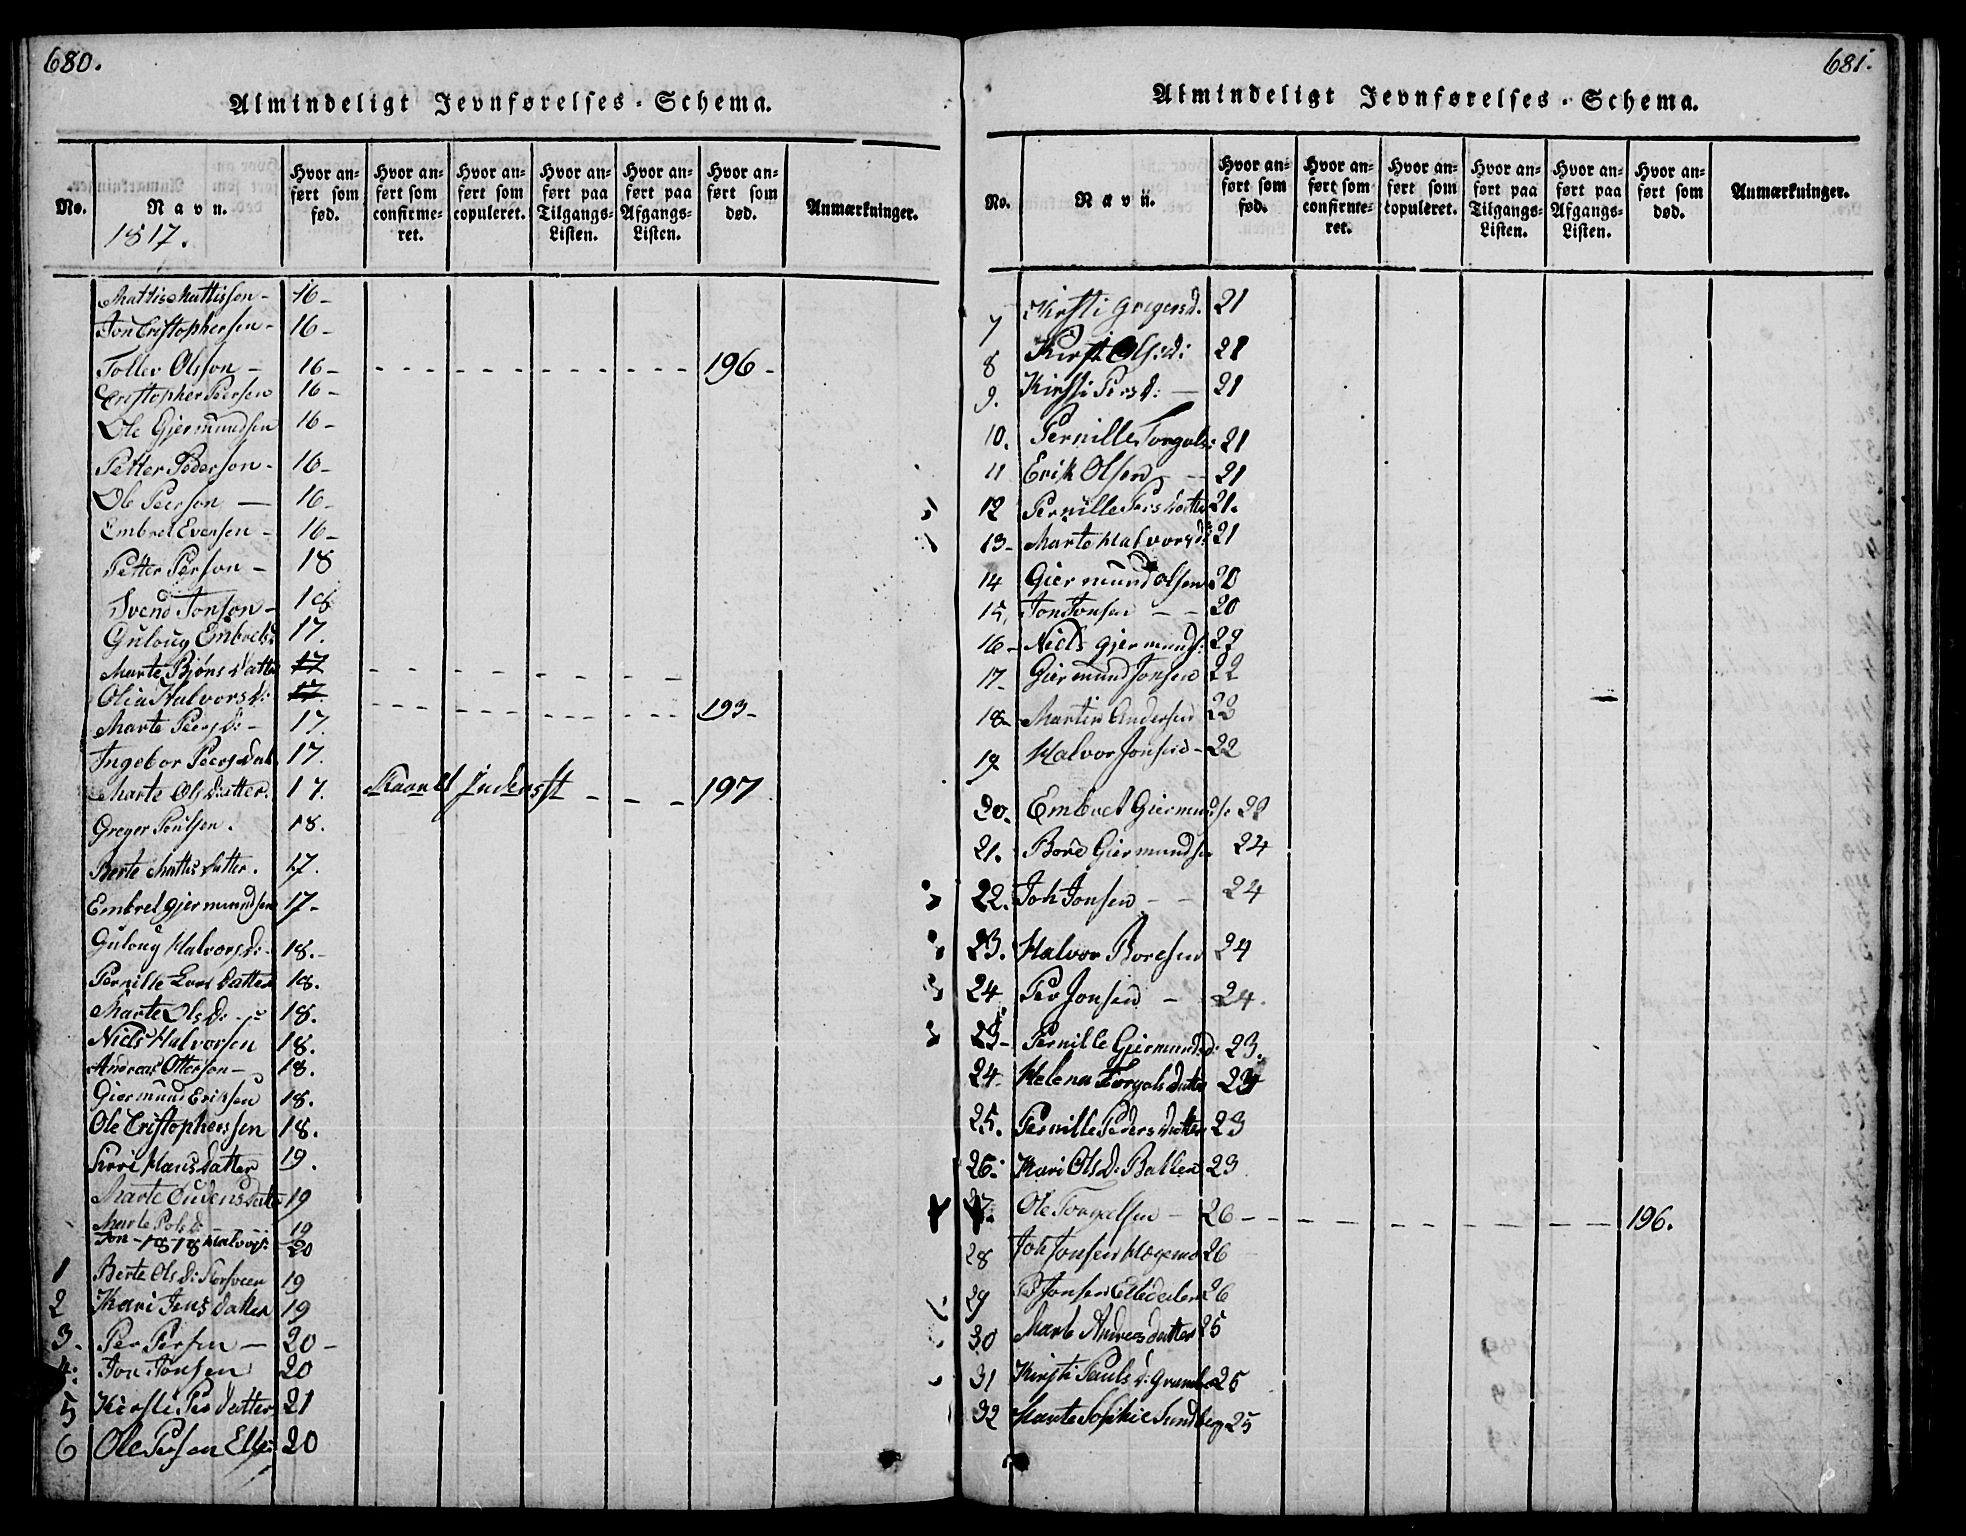 680.
Almindeligt Jevnførelses-Schema.
No.
Navn.
1817.
Hvor anført som fød.
Hvor anført som confirmeret.
Hvor anført som copuleret.
Hvor anført paa Tilgangs-Listen.
Hvor anført paa Afgangs-Listen.
Hvor anført som død.
Anmærkninger.
Mattis Mattisson - 16 -
Jon Cristophersen - 16 -
Tollev Olsson - 16 - 196 -
Cristopher Peersen 16 -
Ole Gjermundsen 16 -
Petter Pederson - 16 -
Ole Peerson - 16 -
Embret Evensen - 16 -
Petter Person - 18
Svend Jonson - 18
Guloug Embrets 17.
Marte Bjøns datte 17
Olia Halvors d: 17. 193 -
Marte Peers d: - 17.
Ingebor Peers dat 17.
Marte Ols datter. 17. 197
Greger Poulsen. 18.
Berte Mattis datter. 17.
Embret Gjermundsen 17 -
Guloug Halvors d: - 18. -
Pernille Lars datter 18.
Marte Ols d: - 18.
Niels Halvorsen 18.
Andreas Otterson - 18.
Giermund Eriksen 18.
Ole Cristopherssen 18.
Siri Hans datter 19.
Marte Oudens datte 19
Marte Pols d: 19
Jon - 1818 Halvors: 20
1 Berte Ols d: 19
2 Kari Jens datter 19
3. Per Persen - 20 -
4. Jon Jonsen 20
5 Kirsti Pers datter 21
6 Ole Persen 20
681.
Almindeligt Jevnførelses-Schema.
No.
Navn.
Hvor anført som fød.
Hvor anført som confirmeret.
Hvor anført som copuleret.
Hvor anført paa Tilgangs-Listen.
Hvor anført paa Afgangs-Listen.
Hvor anført som død.
Anmærkninger.
7 Kirsti Gregersd. 21
8 Kirsti Ols:d: 21
9. Kirsti Pers d: - 21
10. Pernille Torgals: 21
11 Erik Olsen - - 21
12 Pernille Pers datter 21.
13 - Marte Halvors d: 21
14 Giermund Olsen 20
15. Jon Jonsen - - 20
16 - Niels Gjermunds: 22
17 - Giermund Jonsen 22
18 - Martin Andersen 22
19 Halvor Jonsen - 22
20. Embret Giermunds: 22
21. Bore Giermundsen 24
22. Joh Jonsen - - 24
23. Halvor Boresen 24
24 Per Jonsen - 24.
23 - Pernille Giermunds d: 23.
24 - Helena Torgals datter 23
25. Pernille Peders datter 23
26: Kari Ols d: Ballen 23
27. Ole Torgalsen - 26 - 196.
28 Joh Jonsen 26
29 Jonsen 26
30 Marte Andreas datter 25
31 Kirsti Pauls d: 25
32 Marte Sophie Sundbeg 25